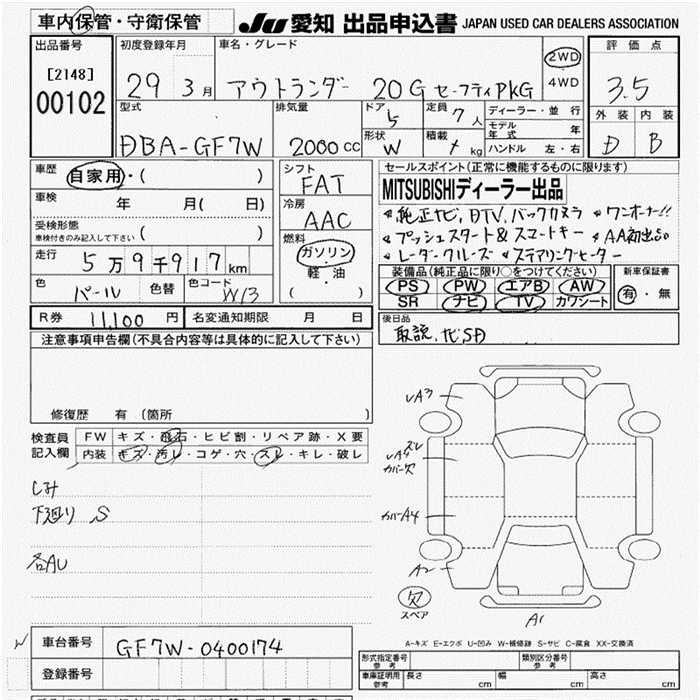 車内保管・守衛保管
JU 愛知 出品申込書 JAPAN USED CAR DEALERS ASSOCIATION
出品番号
[2148]
00102
初度登録年月
29 3月
車名・グレード
アウトランダー 20G セーフティPKG
2WD
4WD
評価点
3.5
外装 内装
D B
型式
DBA-GF7W
排気量
2000cc
ドア
5
形状
W
定員
7人
積載
kg
ディーラー・並行
モデル年式 年
ハンドル 左・右
車歴
自家用・( )
車検 年 月( 日)
受検形態
車検付きのみ記入して下さい ( )
走行 5万9千917km
色 パール 色替 色コード W13
シフト
FAT
冷房
AAC
燃料
ガソリン・
軽・油
( )
セールスポイント(正常に機能するものに限ります)
MITSUBISHIディーラー出品
純正ナビ,DTV,バックカメラ ワンオーナー!!
プッシュスタート&スマートキー AA初出品
レーダークルーズ ステアリングヒーター
装備品(純正品に限り○をつけてください)
PS PW エアB AW
SR ナビ TV カワシート
新車保証書
有・無
R券 11,100円 名変通知期限 月 日
後日品
取説,ナビSD
注意事項申告欄(不具合内容等は具体的に記入して下さい)
修復歴 有 (箇所 )
検査員
記入欄
FW キズ・飛石・ヒビ割・リペア跡・X要
内装 キズ・汚レ・コゲ・穴・スレ・キレ・破レ
シミ
下廻り S
各AU
A3
スレ
A3
カバー欠
カバーA4
A2
欠
スペア
A1
A-キズ E-エクボ U-凹み W-補修跡 S-サビ C-腐食 XX-交換済
車台番号 GF7W-0400174
登録番号
形式指定番号
参考
類別区分番号
参考
車庫証明用
参考
長さ cm 幅 cm 高さ cm